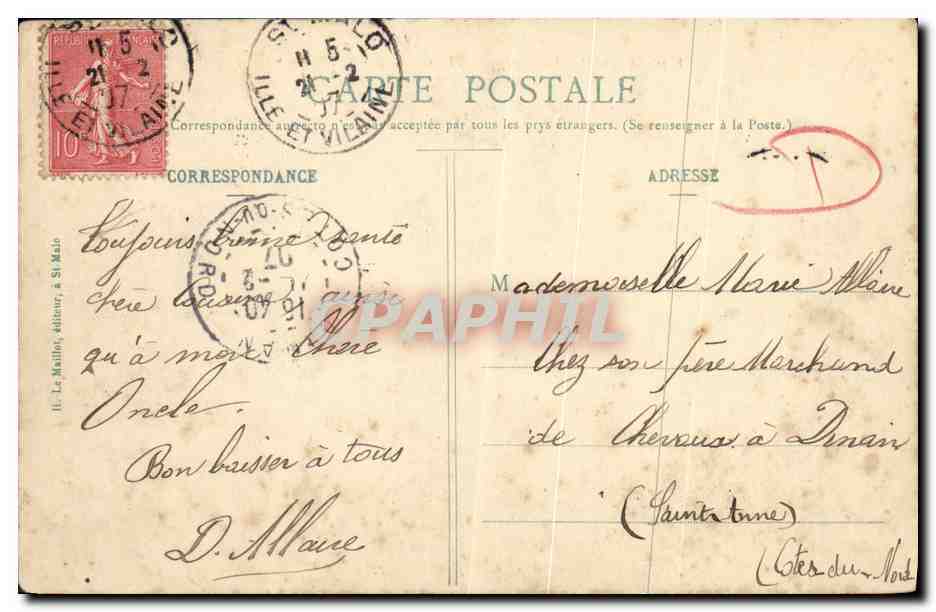 RÉPUBLIQUE FRANÇAISE
10
ST MALO
11 5
21 - 2
07
ILLE ET VILAINE
ST MALO
11 5
21 - 2
07
ILLE ET VILAINE
CARTE POSTALE
Correspondance au recto n'est pas acceptée par tous les pays étrangers. (Se renseigner à la Poste.)
CORRESPONDANCE
ADRESSE
D
Toujours bonne santé
chère cousine ainsi
qu'à mon Chère
Oncle.
Bon baisser à tous
D. Allaire
Mademoiselle Marie Allaire
Chez son père Marchand
de Chevaux à Dinan
(Saint-Anne)
(Côtes du Nord
DU-NORD
16 40
07
H. Le Maillot, éditeur, à St-Malo
CPAPHIL